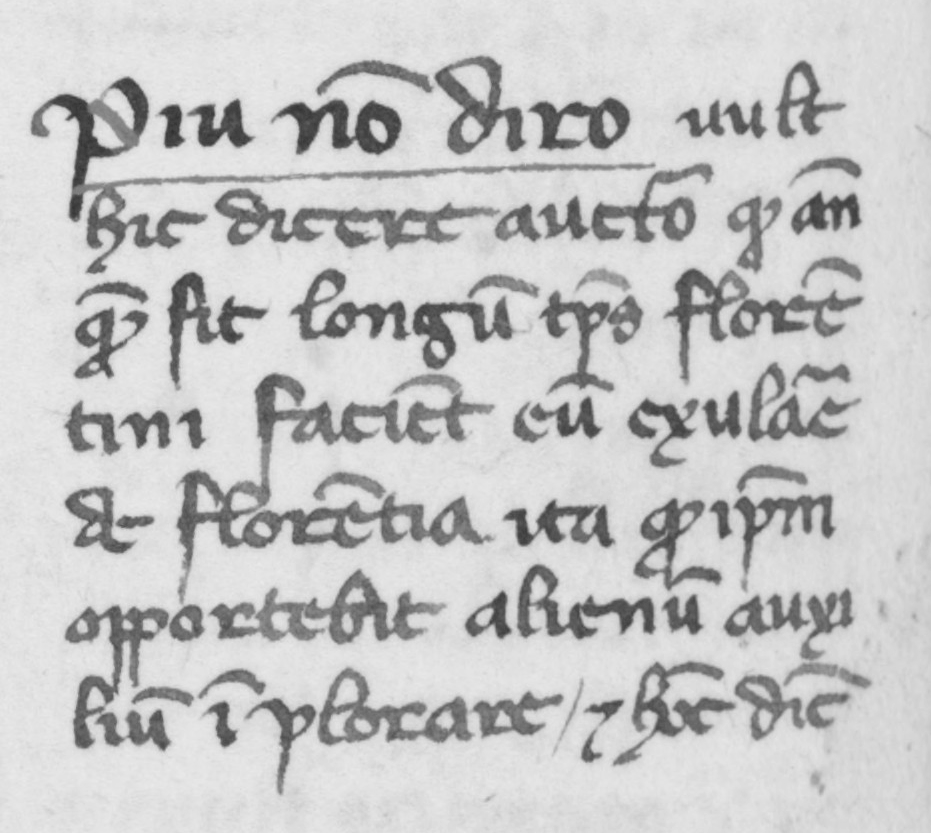 Piu nō diro uult
hic dicere auctō ꝙ an̄
ꝙ̄ sit longū tp̄s florē
tini faciēt eū exulār̄e
de florētia ita ꝙ ip̄m
opportebit alienū auxi
liū ī plorare / ⁊ hoc̄ dic̄